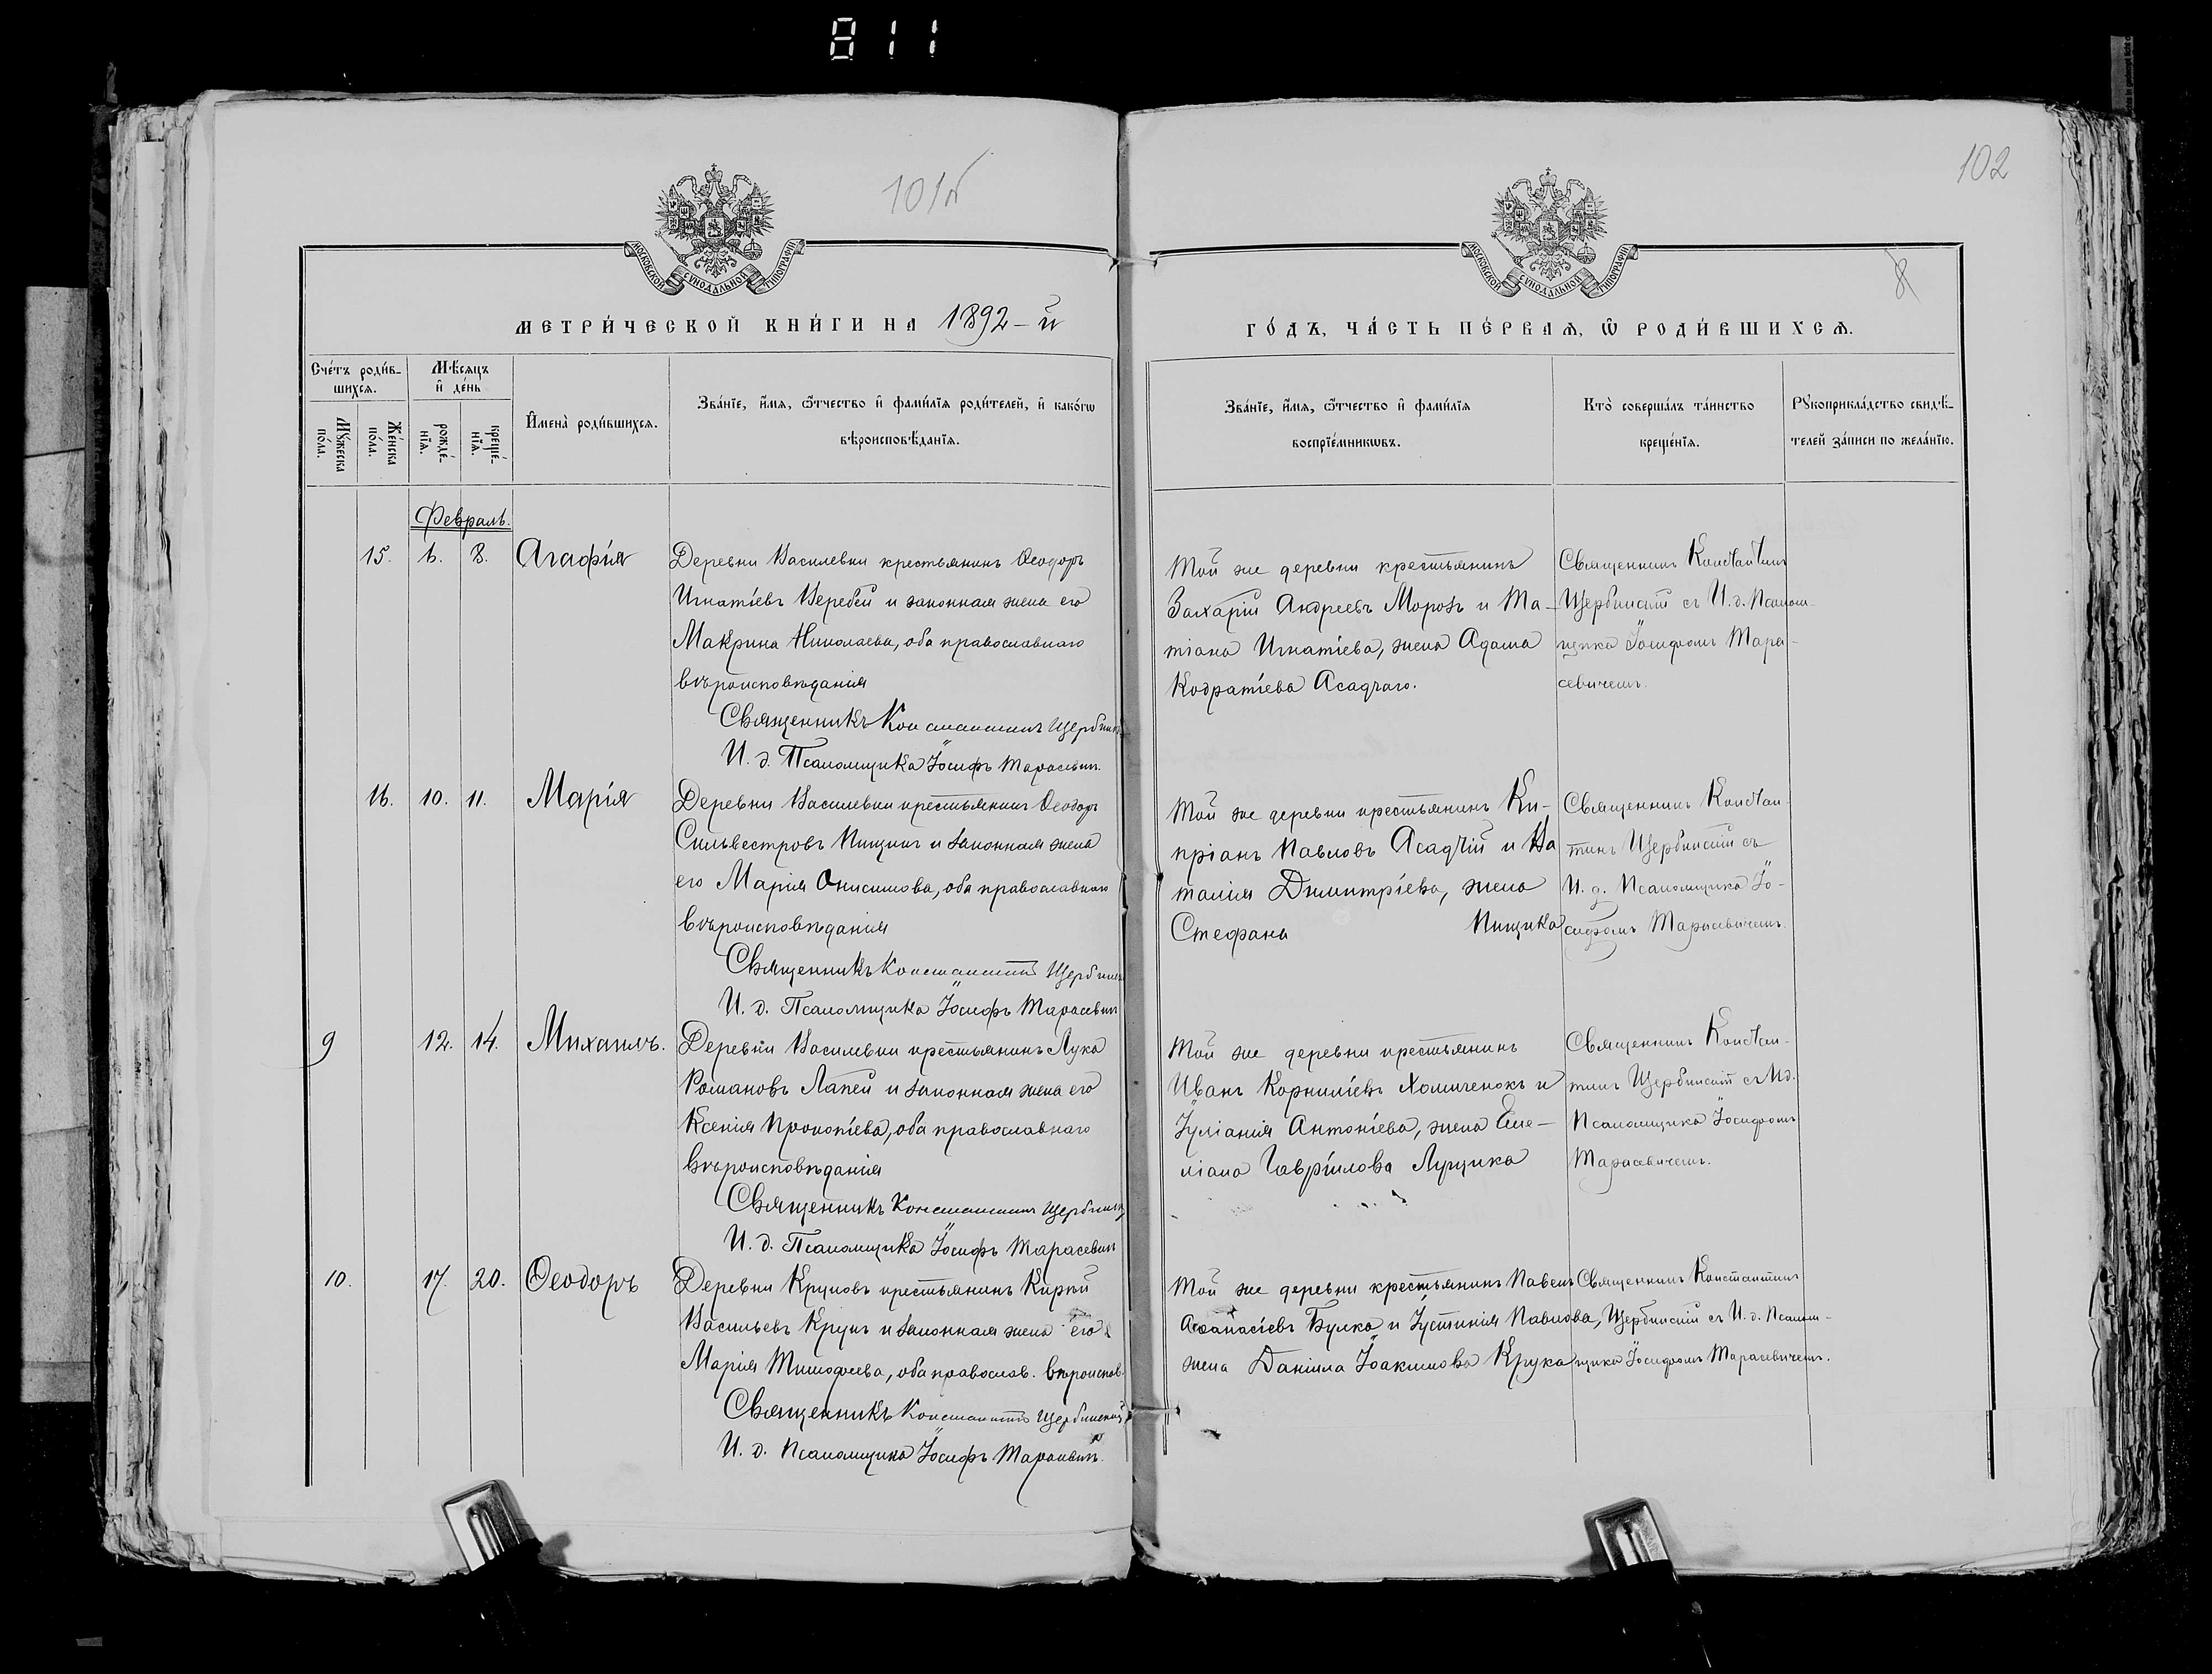 811
101б
102
8
МОСКОВСКОЙ СѴНОДАЛЬНОЙ ТИПОГРАФІИ
МОСКОВСКОЙ СѴНОДАЛЬНОЙ ТИПОГРАФІИ
МЕТРИ́ЧЕСКОЙ КНИ́ГИ НА 1892-й
ГО́ДЪ, ЧА́СТЬ ПЕ́РВАѦ, Ѿ РОДИ́ВШИХСѦ.
Сче́тъ роди́в-
шихсѧ.
Мѣ́сѧцъ
и҆ де́нь
Мꙋ́жеска
по́ла.
Же́нска
по́ла.
рожде́-
нїѧ.
креще́-
нїѧ.
И҆мена̀ роди́вшихсѧ.
Зва́нїе, и҆́мѧ, ѻ҆́тчество и҆ фами́лїѧ роди́телей, и҆ како́гѡ
вѣроисповѣ́данїѧ.
Зва́нїе, и҆́мѧ, ѻ҆́тчество и҆ фами́лїѧ
воспрїе́мникѡвъ.
Кто̀ соверша́лъ та́инство
креще́нїѧ.
Рꙋкоприкла́дство свидѣ́-
телей за́писи по жела́нїю.
Февраль.
15. 6. 8. Агафія
Деревни Василевки крестьянинъ Ѳеодоръ
Игнатіевъ Веребей и законная жена его
Макрина Николаева, оба православнаго
вѣроисповѣданія
Священникъ Константинъ Щербинскій
И. д. Псаломщика Іосифъ Тарасевич.
Той же деревни крестьянинъ
Захарій Андреевъ Морозъ и Та-
тіана Игнатіева, жена Адама
Кодратіева Асадчаго.
Священникъ Константинъ
Щербинскій съ И. д. Псалом-
щика Іосифомъ Тара-
севичемъ.
16. 10. 11. Марія
Деревни Василевки крестьянинъ Ѳеодоръ
Сильвестровъ Пищикъ и законная жена
его Марія Онисимова, оба православнаго
вѣроисповѣданія
Священникъ Константинъ Щербинскій
И. д. Псаломщика Іосифъ Тарасевич
Той же деревни крестьянинъ Ки-
пріанъ Павловъ Асадчій и На
талія Димитріева, жена
Стефана Пищика
Священникъ Констан-
тинъ Щербинскій съ
И. д. Псаломщика Іо-
сифомъ Тарасевичемъ.
9 12. 14. Михаилъ.
Деревни Василевки крестьянинъ Лука
Романовъ Лапей и законная жена его
Ксенія Прокопіева, оба православнаго
вѣроисповѣданія
Священникъ Константинъ Щербинскій
И. д. Псаломщика Іосифъ Тарасевич
Той же деревни крестьянинъ
Иванъ Корниліевъ Хомиченокъ и
Іуліанія Антоніева, жена Еме-
ліана Гавріилова Луцика
Священникъ Констан-
тинъ Щербинскій съ И.д.
Псаломщика Іосифомъ
Тарасевичемъ.
10. 17. 20. Ѳеодоръ
Деревни Круковъ крестьянинъ Кирѣй
Васильевъ Крукъ и законная жена его
Марія Тимофеева, оба православ. вѣроисповѣд.
Священникъ Константинъ Щербинскій
И. д. Псаломщика Іосифъ Тарасевич.
Той же деревни крестьянинъ Павелъ
Аѳанасіевъ Булка и Іустинія Павлова,
жена Даніила Іоакимова Крука
Священникъ Константинъ
Щербинскій съ И. д. Псалом-
щика Іосифомъ Тарасевичемъ.